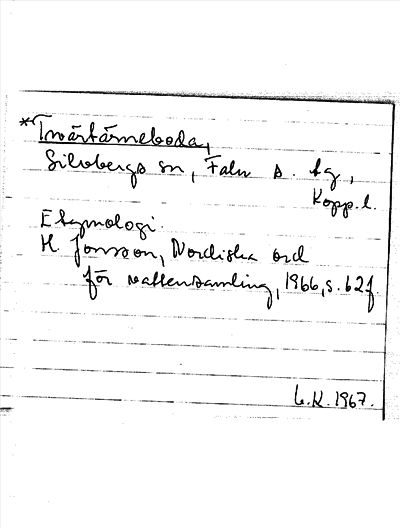 *Tvärtärneboda,
Silvbergs sn, Falu s. tg,
Kopp.l.
Etymologi.
H Jonsson, Nordiska ord
för vattensamling, 1966, s. 62 f.
L.K. 1967.